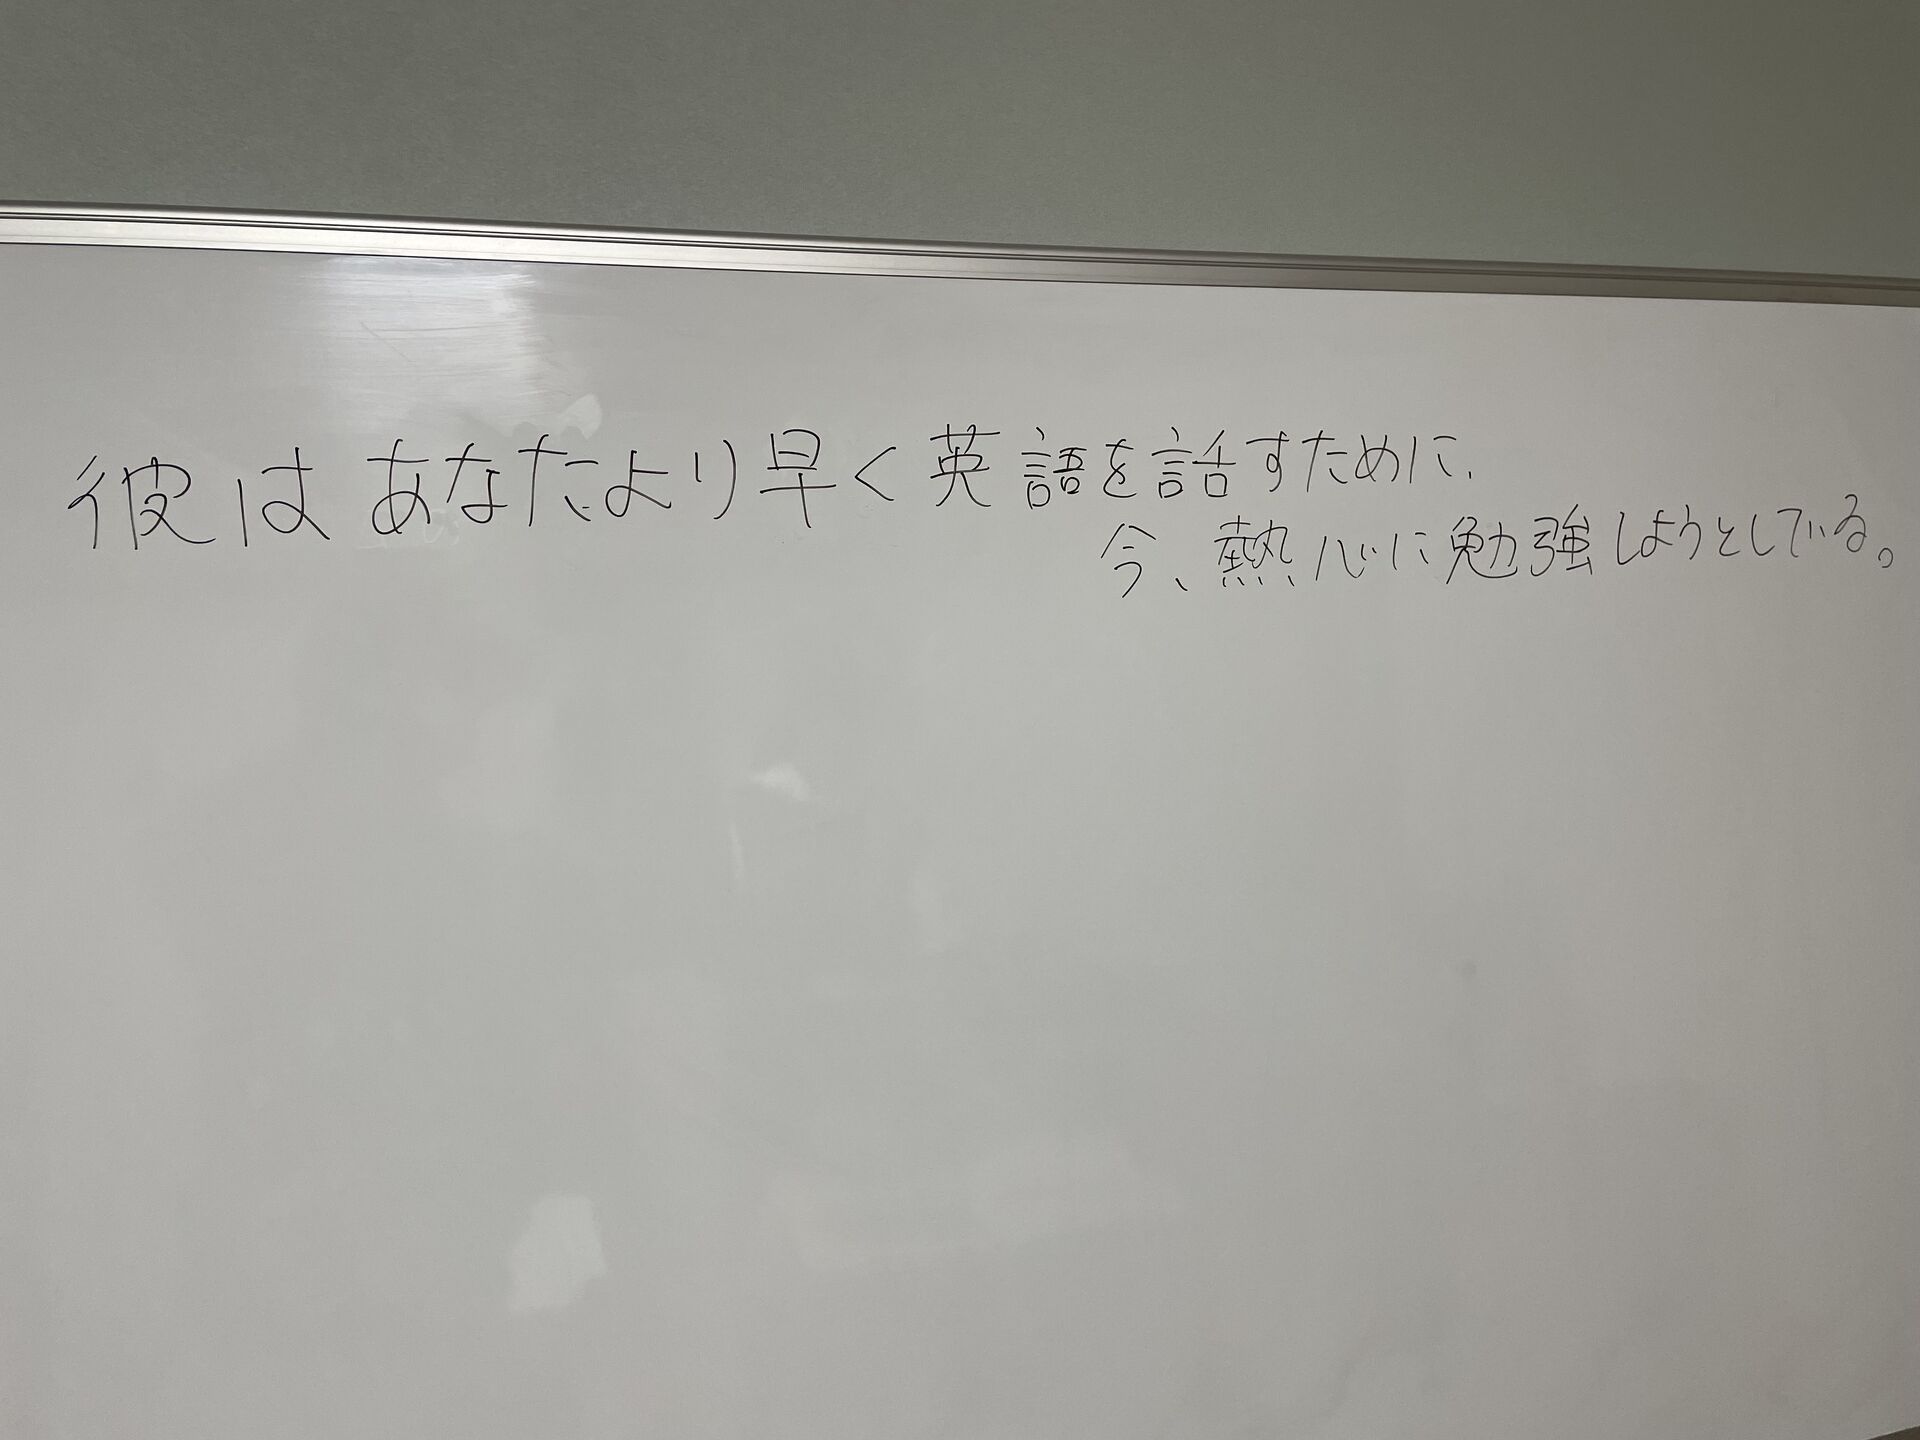 彼はあなたより早く英語を話すために、
今、熱心に勉強しようとしている。